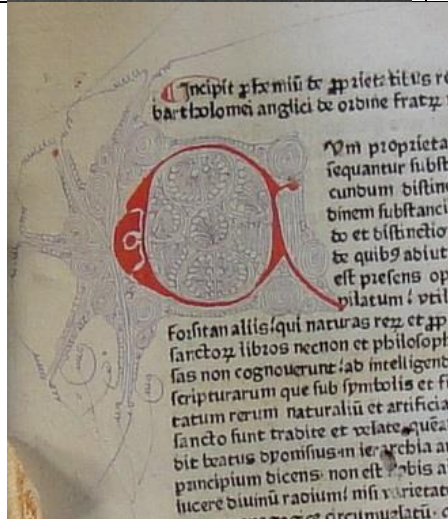 Incipit ꝓhemiū de ꝓprietatibus re
bartholomei anglici de ordine fratꝝ
CUm proprieta
sequantur subst
cundum distin
dinem substanci
do et distinctio
de quibꝯ adiut
est presens op
pilatum: vtil
Forsitan aliis: qui naturas reꝝ et ꝓp
sanctoꝝ libros necnon et philosoph
sas non cognouerunt: ab intelligend
scripturarum que sub symbolis et fi
tatum rerum naturaliū et artificia
sancto sunt tradite et velate quēa
dit beatus dyonisius in ierarchia an
principium dicens: non est nobis a
lucere diuinū radium: nisi varietat
circumuelatū